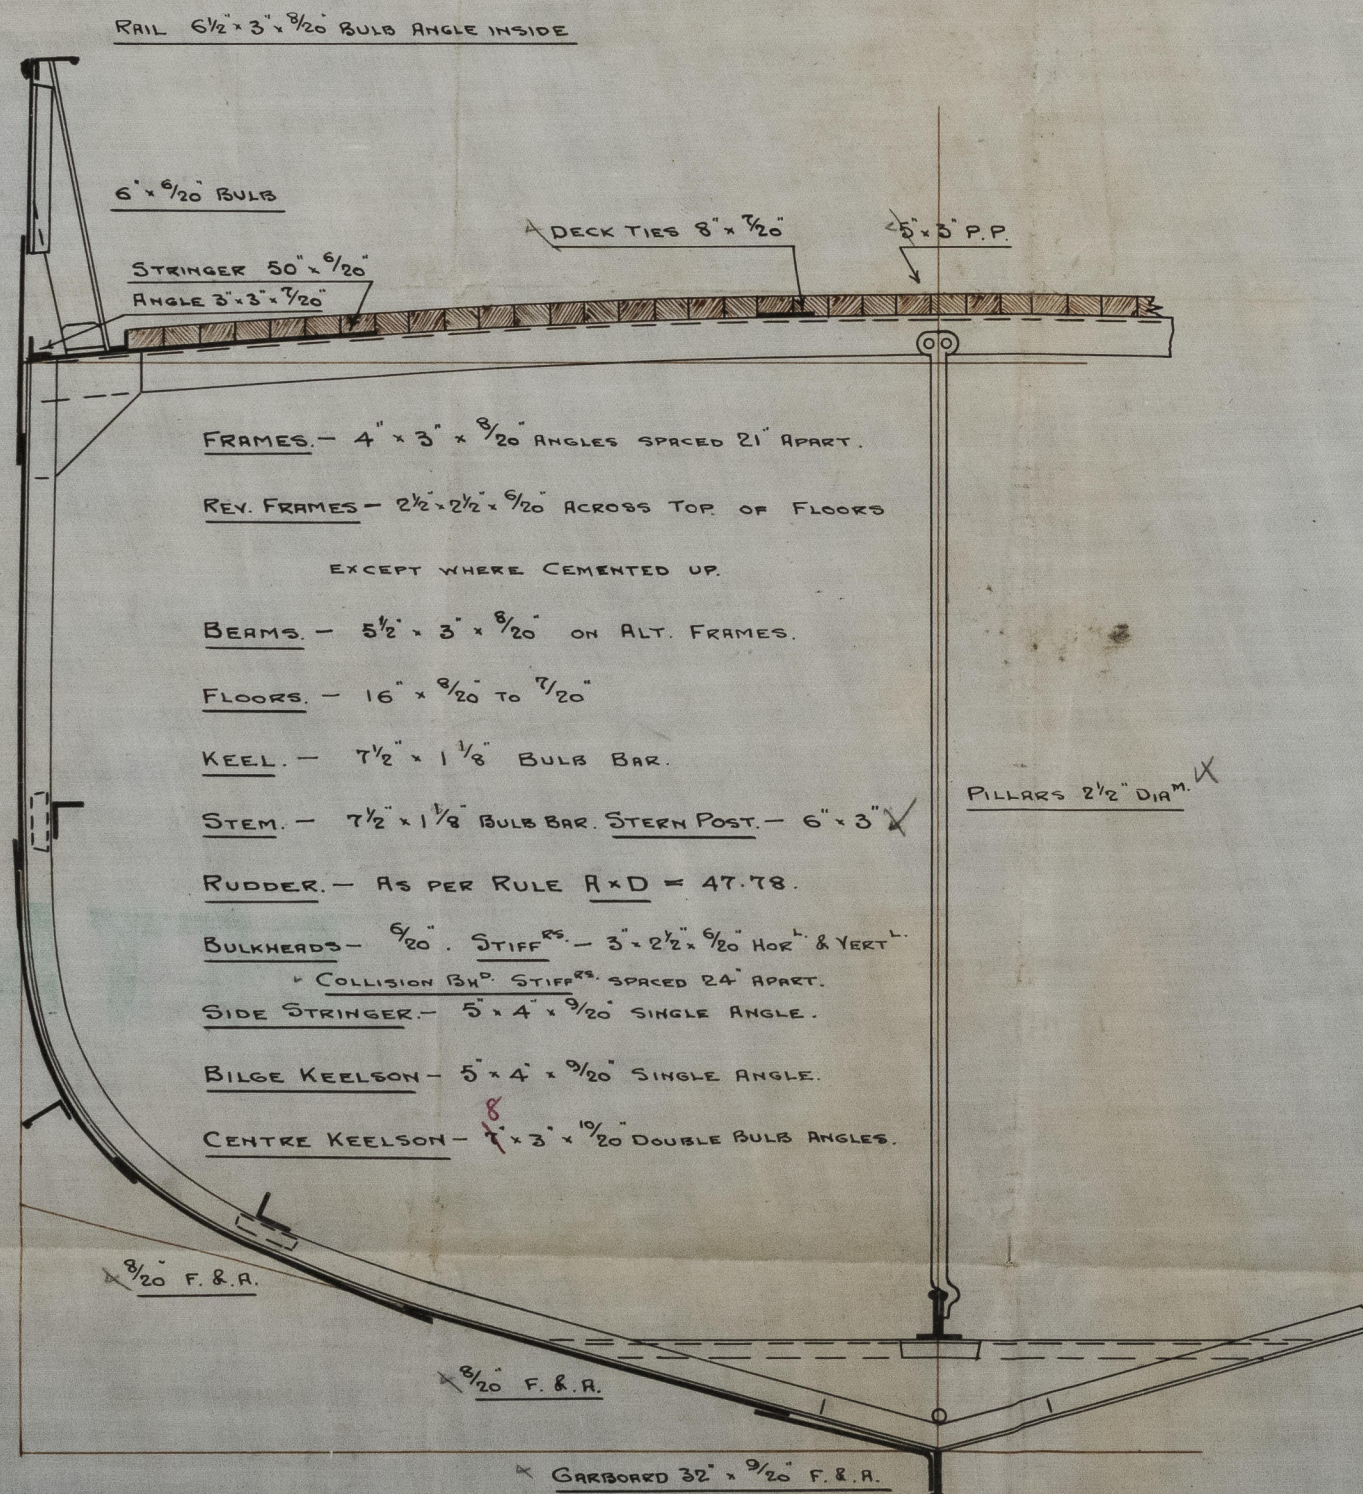 RAIL 6½" × 3" × 8/20" BULB ANGLE INSIDE
6" × 6/20" BULB
DECK TIES 8" × 7/20"
5" × 3" P.P.
STRINGER 50" × 6/20"
ANGLE 3" × 3" × 7/20"
FRAMES. – 4" × 3" × 8/20" ANGLES SPACED 21" APART.
REV. FRAMES – 2½" × 2½" × 6/20" ACROSS TOP OF FLOORS
EXCEPT WHERE CEMENTED UP.
BEAMS. – 5½" × 3" × 8/20" ON ALT. FRAMES.
FLOORS. – 16" × 8/20" TO 7/20"
KEEL. – 7½" × 1 ⅛" BULB BAR.
PILLARS 2½" DIAM.
STEM. – 7½" × 1⅛" BULB BAR. STERN POST. – 6" × 3"
RUDDER. – AS PER RULE A×D = 47.78.
BULKHEADS – 6/20". STIFFRS. – 3" × 2½" × 6/20" HORL. & VERTL.
" COLLISION BHD. STIFFRS. SPACED 24" APART.
SIDE STRINGER. – 5" × 4" × 9/20" SINGLE ANGLE.
BILGE KEELSON – 5" × 4" × 9/20" SINGLE ANGLE.
8
CENTRE KEELSON – 7" × 3" × 10/20" DOUBLE BULB ANGLES.
8/20" F. & A.
8/20" F. & A.
GARBOARD 32" × 9/20" F. & A.